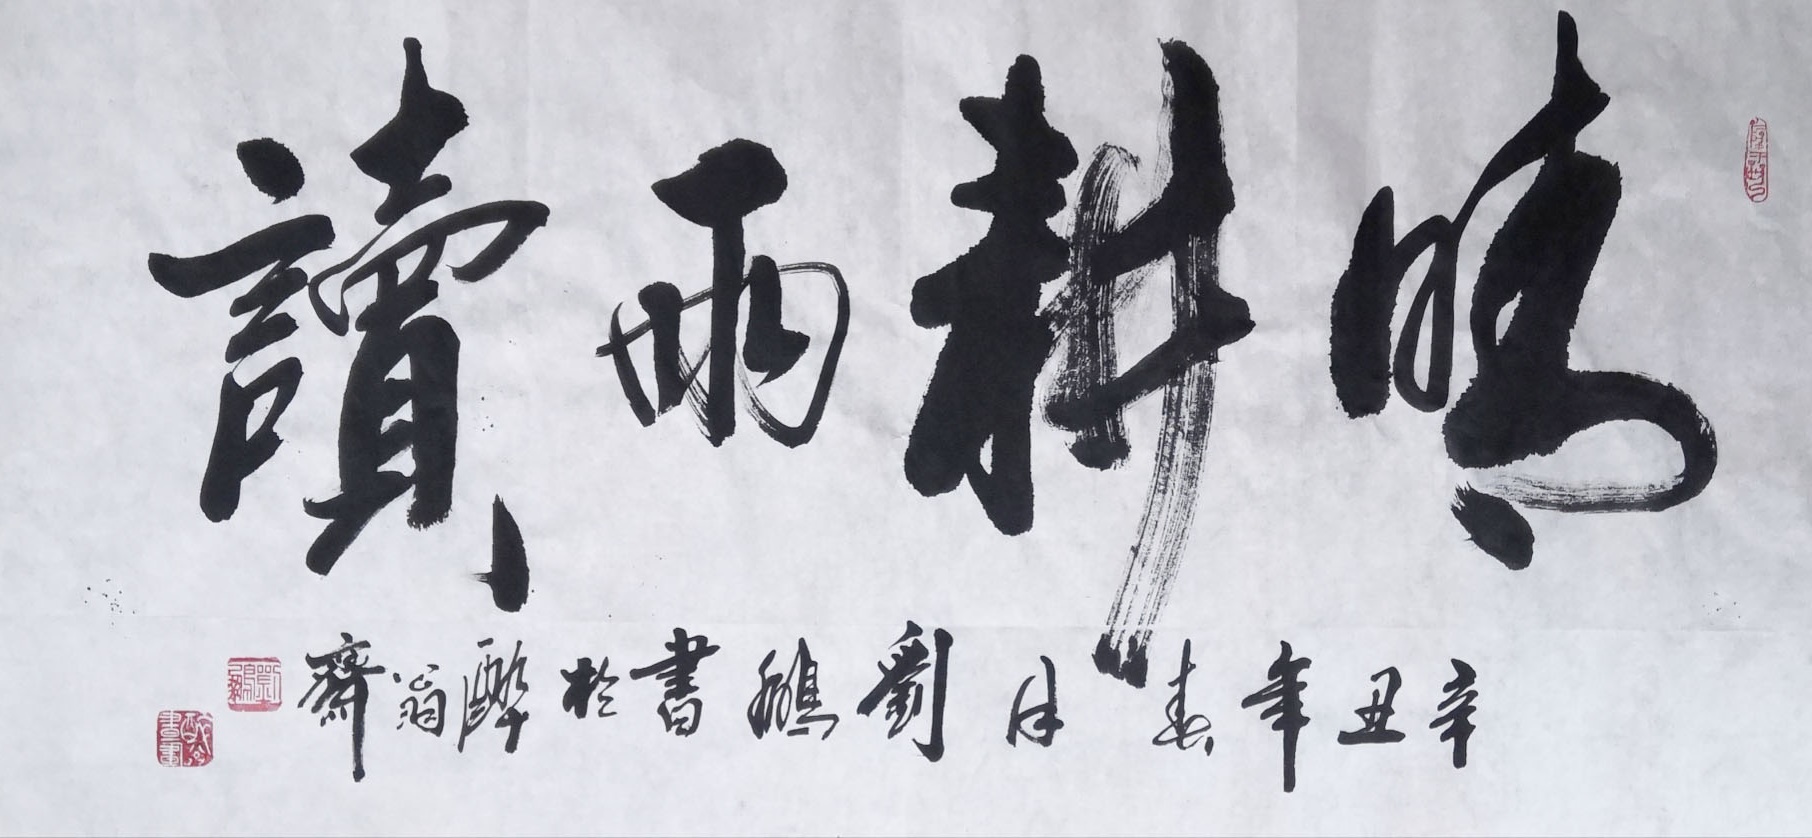 晴耕雨讀
辛丑年春月劉鵬書於醉翁齋